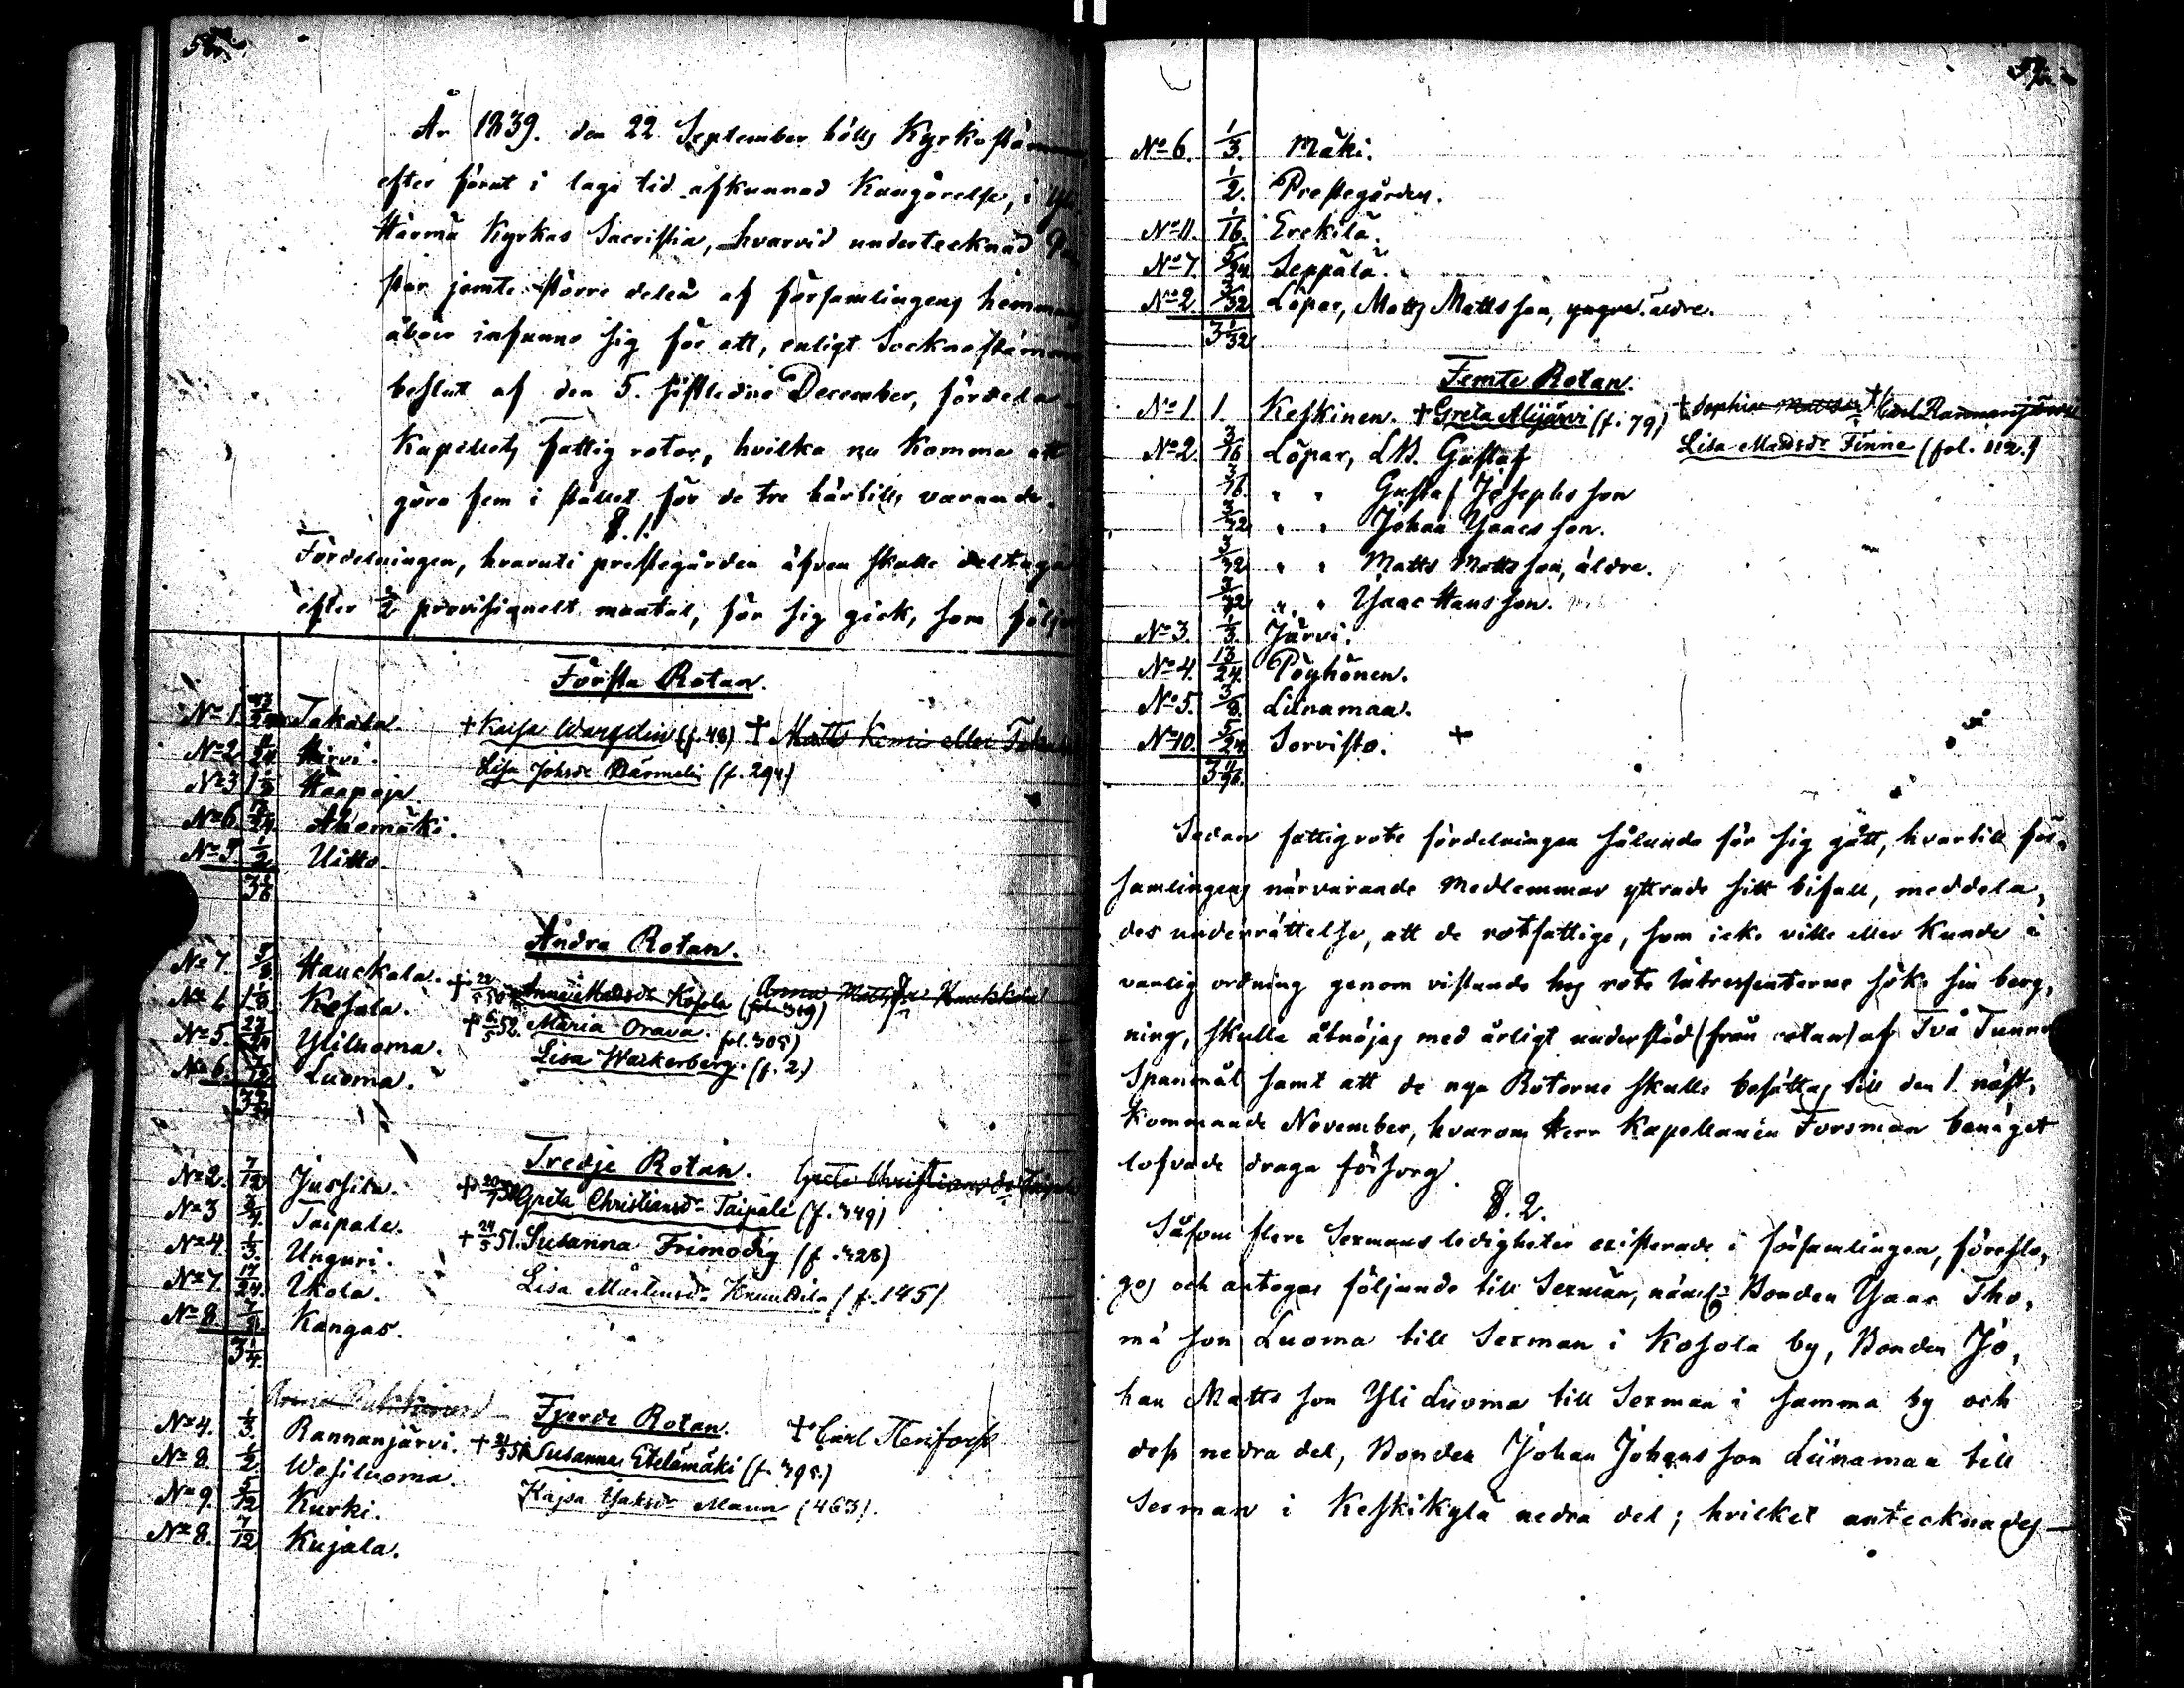 År 1839. den 22 September hölls Kyrkostämma
efter förut i laga tid afkunnad Kungörelse, i Yli
Härmä Kyrkas Sacristia, hvarvid undertecknad Pa
stor jemte större delen af församlingens hemmans
åboer infunno sig för att, enligt Sockne stämmo
beslut af den 5. sistledne December, fördela
Kapellets fattig rotor, hvilka nu komma att
göra fem i stället för de tre härtills varande.
§. 1.
Fördelningen, hvaruti prestegården äfven skulle deltaga
efter 1/2 provisionelt mantal, för sig gick, som följer
Första Rotan.
No 1. Takala. + Kaisa Wargelin (f. 48) + Matts Kemi eller Takala
No 2 Hirvi. Lisa Johsdr Härmelin (f. 294.)
No 3 Haapoja.
No 6. Ahomäki.
No 7 1/2 Uitto.
3 1/6
Andra Rotan.
No 7. 5/8 Hauckala. + Anna Matsdr Kosola (fol. 319) Anna Mattsdr Hauckala
No 1 1 1/8 Kosola. + 6/5 52. Maria Orava. fol. 305)
No 5. 23/24 Yliluoma. Lisa Wackerberg. (f. 2)
No 6. 7/12 Luoma.
Tredje Rotan. Greta Christiansdr Taipale
No 2. 7/12 Jussila. + Greta Christiansdr Taipale (f. 349)
No 3 3/4 Taipale. + 24/5 51. Susanna Frimodig (f. 328)
No 4. 1/3. Unguri. Lisa Mårtensdr Knuutila (f. 145)
No 7. 17/24. Ikola.
No 8 7/8. Kangas.
3 1/4.
Fjerde Rotan. + Carl Stenfors
No 4. 1/3. Rannanjärvi. + Susanna Etelämäki (f. 395.)
No 8. 1/2 Wesiluoma. Kajsa Isaksdr Maun (463).
No 9. 5/12 Kurki.
No 8. 7/12 Kujala.
No 6. 1/3. Mäki.
1/2. Prestegården.
No 11. 1/16. Erckilä.
No 7. 5/24. Seppälä.
No 2 3/32 Löpar, Matts Mattsson, yngre. äldre.
3 1/32
Femte Rotan.
No 1 1. Keskinen. + Greta Alijärvi (f. 79) + Sophia Mattsdr + Carl Rannanjärvi
No 2. 3/16 Löpar, LM. Gustaf Lisa Mattsdr Finne (fol. 112.)
3/16 " " Gustaf Josephsson
3/32 " " Johan Isacsson.
3/32 " " Matts Mattsson, äldre.
3/32 " " Isaac Hansson.
No 3. Järvi.
No 4. 13/24. Pöyhönen.
No 5. 3/8. Liinamaa.
No 10. 5/24 Sorvisto. +
3 11/96.
Sedan fattigrote fördelningen sålunda för sig gått, hvartill för-
samlingens närvarande Medlemmar yttrade sitt bifall, meddela-
des underrättelse, att de rotfattige, som icke ville eller kunde i
vanlig ordning genom vistande hos rote Intressenterne söka sin berg-
ning, skulle åtnöjas med årligt understöd (från rotan) af Två Tunnor
Spannmål samt att de nya Rotorne skulle besättas till den 1. näst-
kommande November, hvarom Herr Kapellanen Forsman benäget
lofvade draga försorg.
§. 2.
Såsom flere Sexmans ledigheter existerade i församlingen, föreslo-
gos och antogos följande till Sexmän, näml: Bonden Isaac Tho-
mä son Luoma till Sexman i Kosola by, Bonden Jo-
han Matts son Yli Luoma till Sexman i samma by och
dess nedra del, Bonden Johan Johansson Liinamaa till
Sexman i Keskikylä nedra del; hvilket antecknades